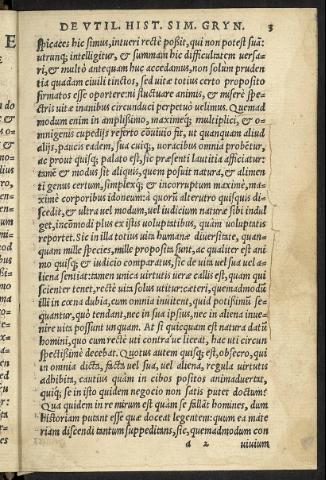 DE VTIL. HIST. SIM. GRYN. 3
spicaces hic simus, intueri rectè poßit, qui non potest suã:
utrunq; intelligitur, & summam hic difficultatem uersa-
ri, & multò antequam huc accedamus, non solùm pruden
tia quadam ciuili tinctos, sed uitæ totius certo proposito
firmatos esse oportere: ni fluctuare animis, & miserè spe-
ctris uitæ inanibus circunduci perpetuò uelimus. Quemad
modum enim in amplißimo, maximeq; multiplici, & o-
mnigenis cupedijs referto cõuiuio fit, ut quanquam aliud
alijs, paucis eadem, sua cuiq;, uoracibus omnia probẽtur,
ac prout quisq; palato est, sic præsenti lautitia afficiatur:
tamẽ & modus sit aliquis, quem posuit natura, & alimen
ti genus certum, simplexq; & incorruptum maximè, ma-
ximè corporibus idoneum: à quorũ alterutro quisquis di-
scedit, & ultra uel modum, uel iudicium naturæ sibi indul
get, incõmodi plus ex istis uoluptatibus, quàm uoluptatis
reportet. Sic in illa totius uitæ humanæ diuersitate, quan-
quam mille species, mille proposita sunt, ac qualiter est ani
mo quisq; & iudicio comparatus, sic de uita uel sua uel a-
liena sentiat: tamen unica uirtutis ueræ callis est, quam qui
scienter tenet, rectè uita solus utitur: cæteri, quemadmodũ
illi in cœna dubia, cum omnia inuitent, quid potißimũ se-
quantur, quò tendant, nec in sua ipsius, nec in aliena inue-
nire uita possunt unquam. At si quicquam est natura datũ
homini, quo cum rectè uti contrà ue liceat, hac uti circun
spectißimè decebat. Quotus autem quisq; est, obsecro, qui
in omnia dicta, facta uel sua, uel aliena, regula uirtutis
adhibita, cautius quàm in cibos positos animaduertat,
quiq; se in isto quidem negocio non satis putet doctum?
Qua quidem in re mirum est quàm se fallãt homines, dum
historiam putant esse quæ doceat legentem: quum ea mate
riam discendi tantum suppeditans, sic, quemadmodum con
a 2 uiuium